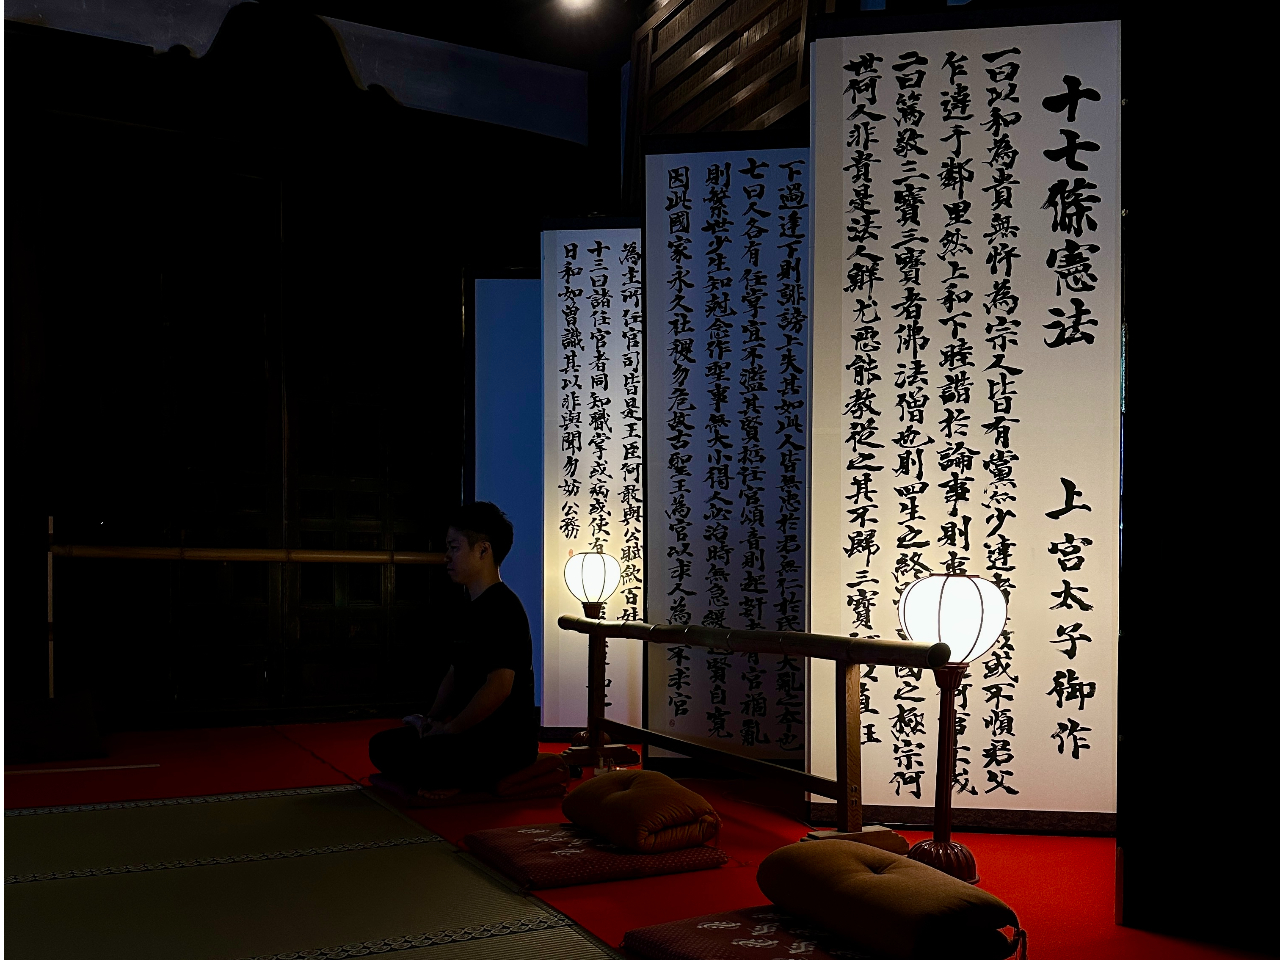 十七條憲法 上宮太子御作
一曰以和為貴無忤為宗人皆有黨亦少達者 或不順君父
乍違于鄰里然上和下睦諧於論事則事 何事不成
二曰篤敬三寶三寶者佛法僧也則四生之終 國之極宗何
世何人非貴是法人鮮尤惡能教從之其不歸三寶 以直
下過逢下則誹謗上失其如此人皆無忠於君無仁於民 大亂之本也
七曰人各有任掌宜不濫其賢哲任官頌音則起奸者有官禍亂
則繁世少生知剋念作聖事無大小得人必治時無急緩遇賢自寬
因此國家永久社稷勿危故古聖王為官以求人為 不求官
為主所任官司皆是王臣何敢與公賦斂百姓
十三曰諸任官者同知職掌或病或使有
日和如曾識其以非與聞勿妨公務